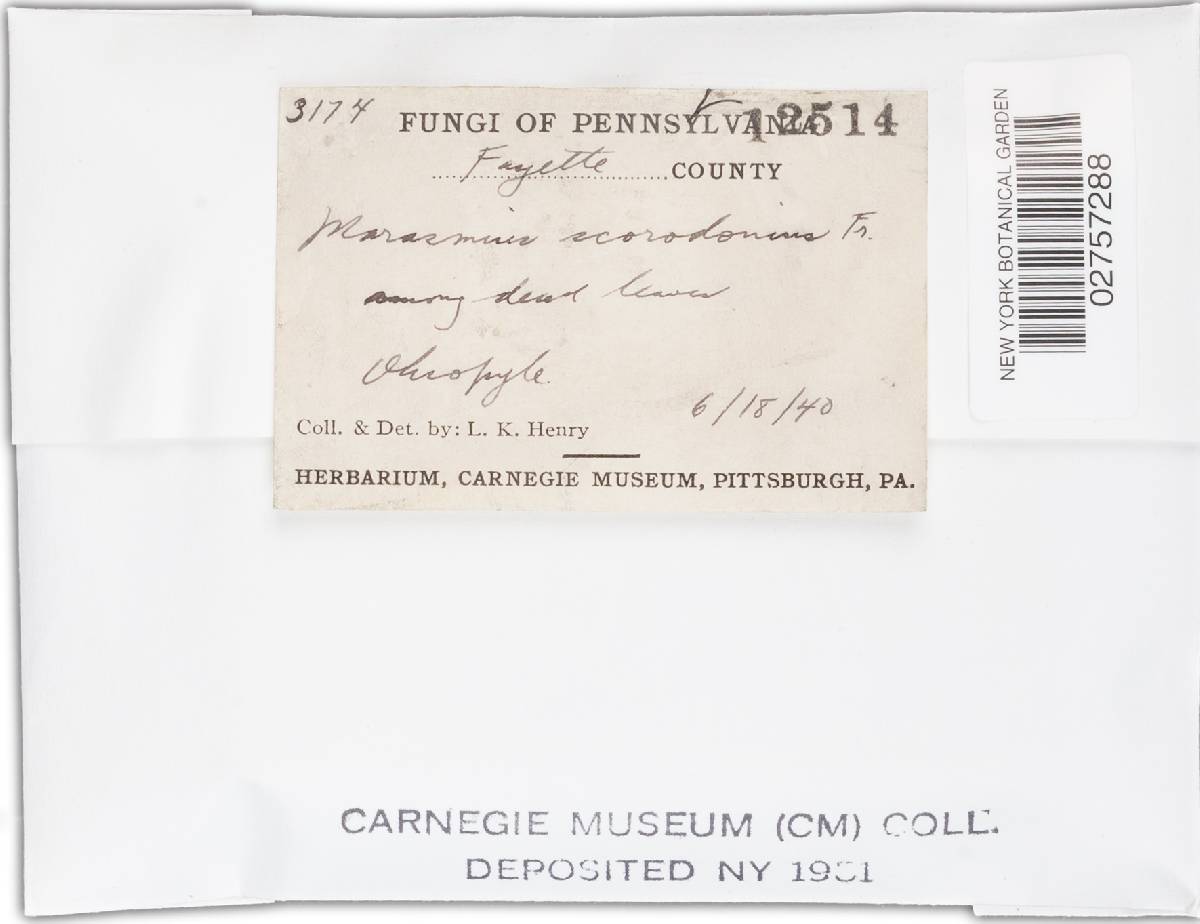 3174
FUNGI OF PENNSYLVANIA
12514
Fayette COUNTY
Marasmius scorodonius Fr.
among dead leaves
Ohiopyle
6/18/40
Coll. & Det. by: L. K. Henry
HERBARIUM, CARNEGIE MUSEUM, PITTSBURGH, PA.
NEW YORK BOTANICAL GARDEN
02757288
CARNEGIE MUSEUM (CM) COLL.
DEPOSITED NY